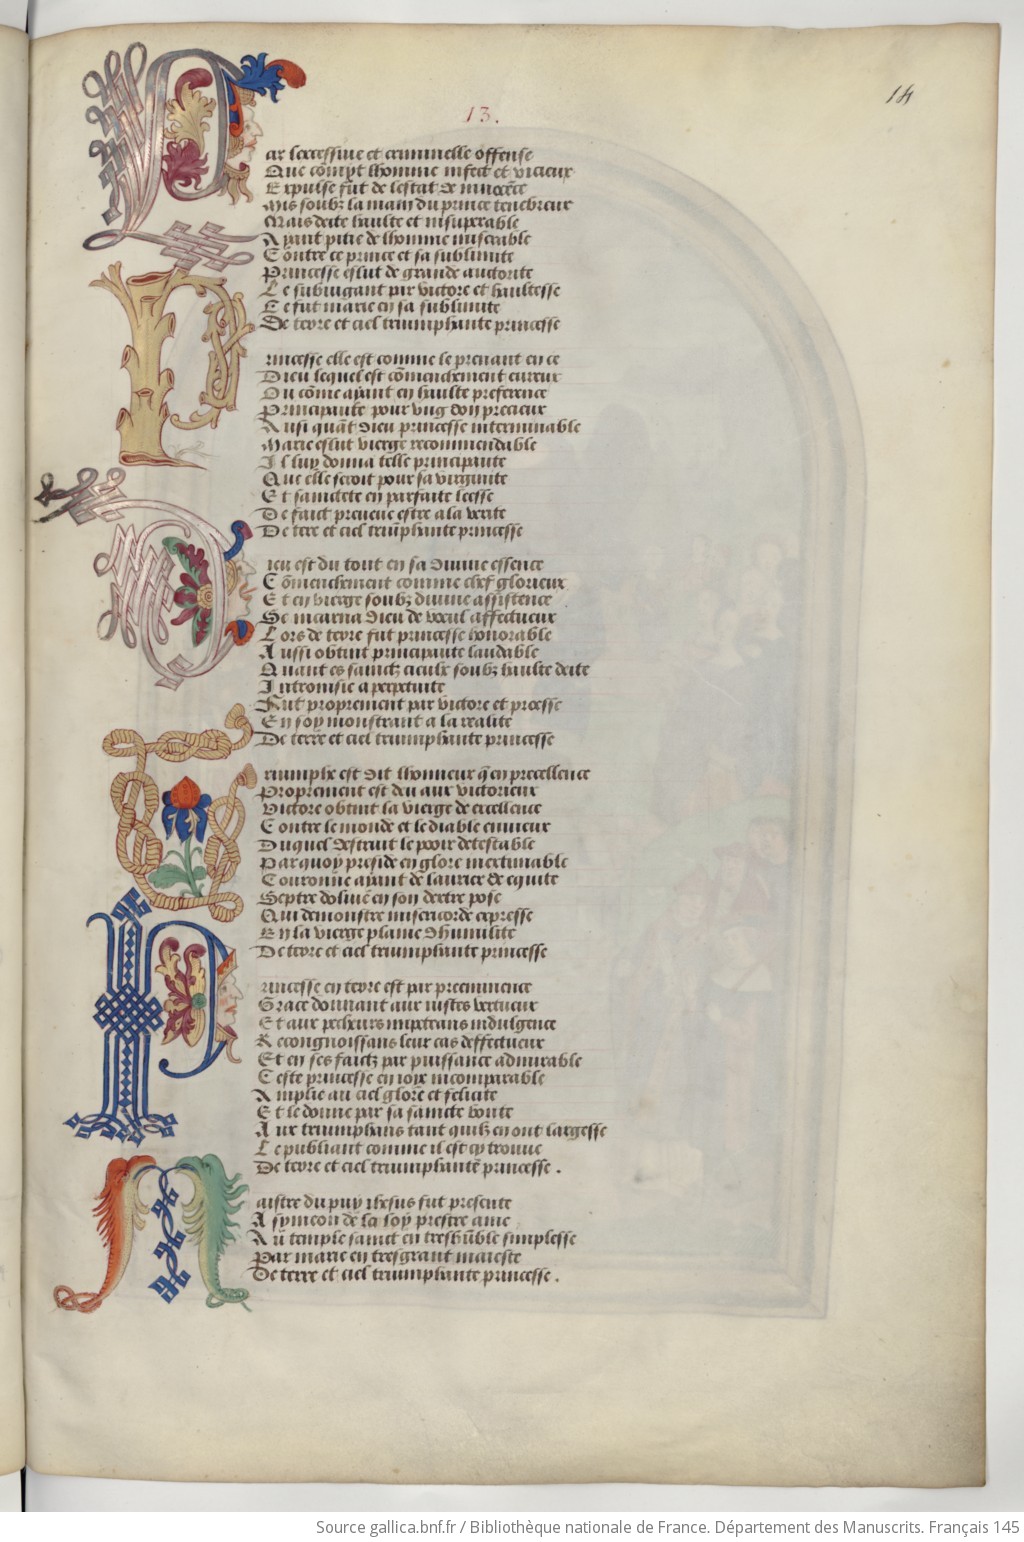 14
13.
Par lexcessiue et criminelle offense
Que cõmyt lhomme infect et vicieux
Expulse fut de lestat de innocẽce
Mis soubz la main du prince tenebreux
Mais deite haulte et insuperable
Ayant pitie de lhomme miserable
Contre ce prince et sa sublimite
Princesse eslut de grande auctorite
Le subiugant par victore et haultesse
Ce fut marie en sa sublimite
De terre et ciel triumphante princesse
Princesse elle est comme le prenant en ce
Dieu lequel est cõmenchement eureux
Ou cõme ayant en haulte preference
Principaulte pour vng don precieux
Ausi quãt dieu princesse interminable
Marie eslut vierge recommendable
Il luy donna telle principaute
Que elle seroit pour sa virginite
Et sainctete en parfaite leesse
De faict preueue estre a la verite
De terre et ciel triũphante princesse
Dieu est du tout en sa diuine essence
Cõmenchement comme chef glorieux
Et en vierge soubz diuine assistence
Se incarna dieu de voeul affectueux
Lors de terre fut princesse honorable
Aussi obtint principaute laudable
Quant es sainctz cieulx soubz haulte deite
Intronisie a perpetuite
Fut proprement par victore et proesse
En soy monstrant a la realite
De terre et ciel triumphante princesse
Triumphe est dit lhonneur q̃ en precellence
Proprement est deu aux victorieux
Victore obtint la vierge de excellence
Contre le monde et le diable enuieux
Duquel destruit le pooir detestable
Par quoy preside en glore inextimable
Couronne ayant de laurier de equite
Septre doliue en son dextre pose
Qui demonstre misericorde expresse
En la vierge plaine dhumilite
De terre et ciel triumphante princesse
Princesse en terre est par preeminence
Grace donnant aux iustes vertueux
Et aux pecheurs impetrans indulgence
Recongnoissans leur cas deffectueux
Et en ses faictz par puissance admirable
Ceste princesse en ioye incomparable
Amplie au ciel glore et felicite
Et le donne par sa saincte bonte
Aux triumphans tant quilz en ont largesse
Le publiant comme il est en trouue
De terre et ciel triumphante princesse .
Maistre du puy ihesus fut presente
A symeon de la loy prestre ame
Au temple sainct en treshũble simplesse
Par marie en tresgrant maieste
De terre et ciel triumphante princesse .
Source gallica.bnf.fr / Bibliothèque nationale de France. Département des Manuscrits. Français 145